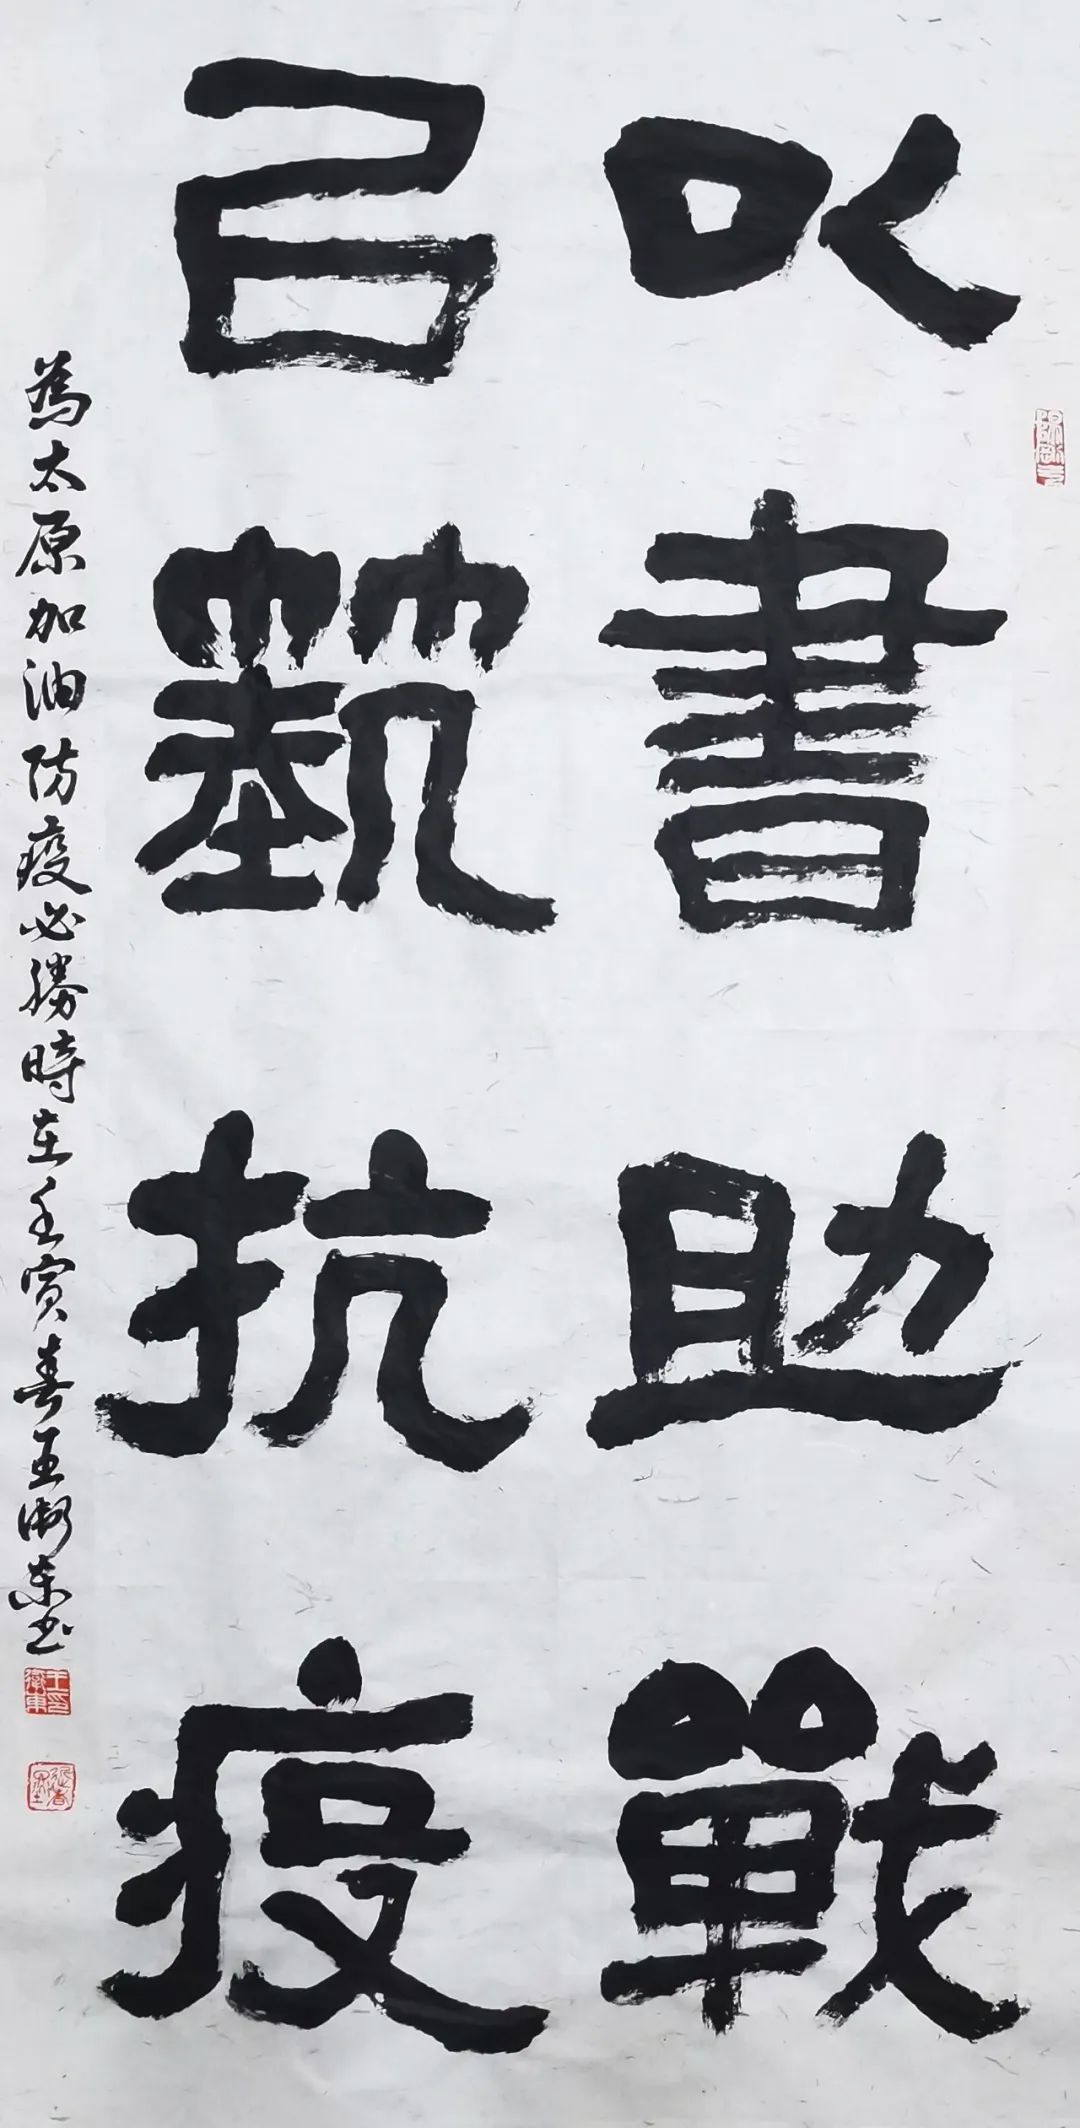 以書助戰
㠯蓺抗疫
為太原加油防疫必勝時在壬寅春王衛东书